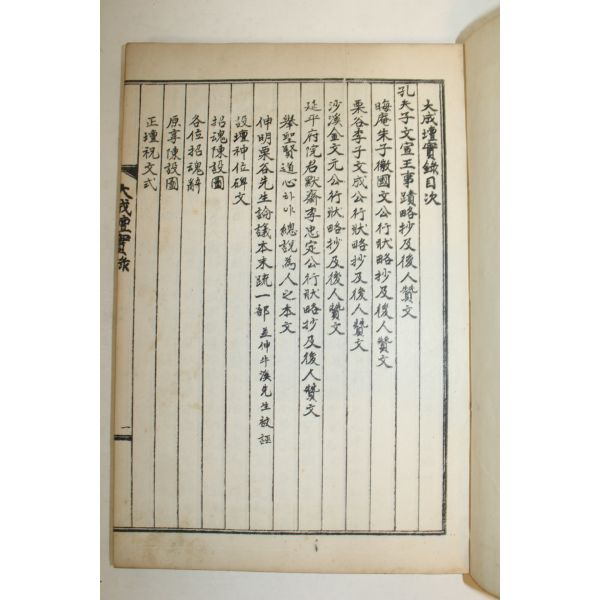 大成壇實錄目次
孔夫子文宣王事蹟略抄及後人贊文
晦庵朱子徽國文公行狀略抄及後人贊文
栗谷李子文成公行狀略抄及後人贊文
沙溪金文元公行狀略抄及後人贊文
延平府院君默齋李忠定公行狀略抄及後人贊文
擧聖賢道心卦中總說為人之本文
伸明栗谷先生論議本末疏一部 並伸牛溪先生被誣
設壇神位碑文
招魂陳設圖
各位招魂辭
原享陳設圖
正壇祝文式
大成壇實錄
一